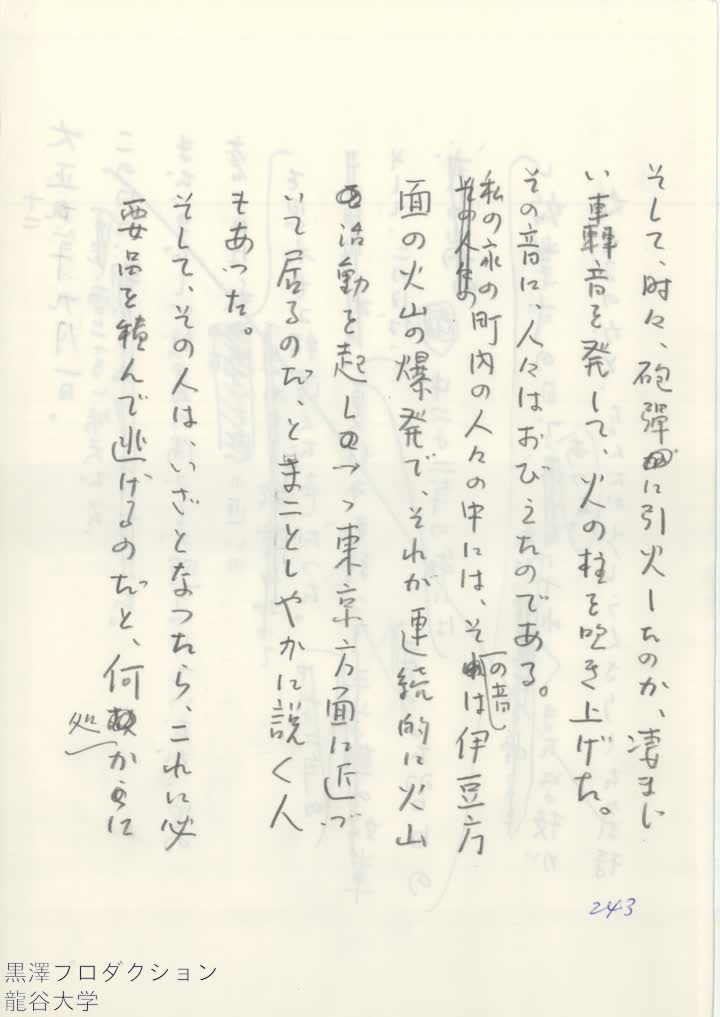 そして、时々、砲彈に引火したのか、凄まじ
い轟音を発して、火の柱を吹き上げた。
その音に、人々はおびえたのである。
私の家の町内の人々の中には、その音は伊豆方
面の火山の爆発で、それが連続的に火山
活動を起しつつ東京方面に近づ
いて居るのだ、とまことしやかに説く人
もあった。
そして、その人は、いざとなったら、これに必
要品を積んで逃げるのだと、何処からに
243
黒澤プロダクション
龍谷大学